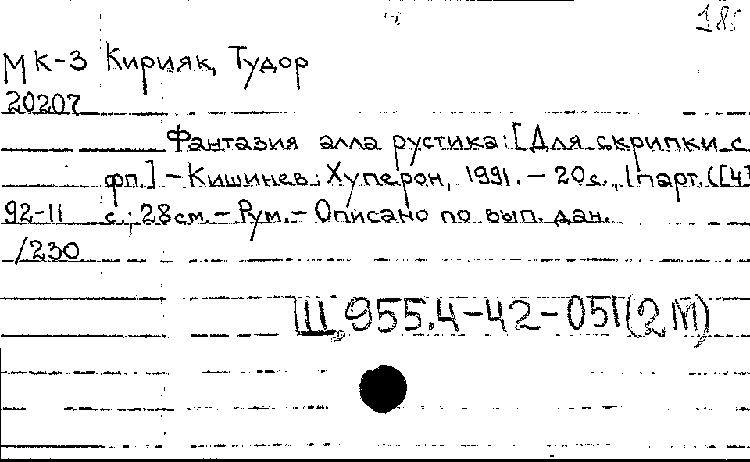 МК-3 Кирияк, Тудор
20207
Фантазия алла рустика: [Для скрипки с
фп.] - Кишинев: Хуперон, 1991. - 20 с., 1 парт. ([4]
92-11 с.; 28 см. - Рум. - Описано по вып. дан.
/230
Щ 955.4-42-051(2М)